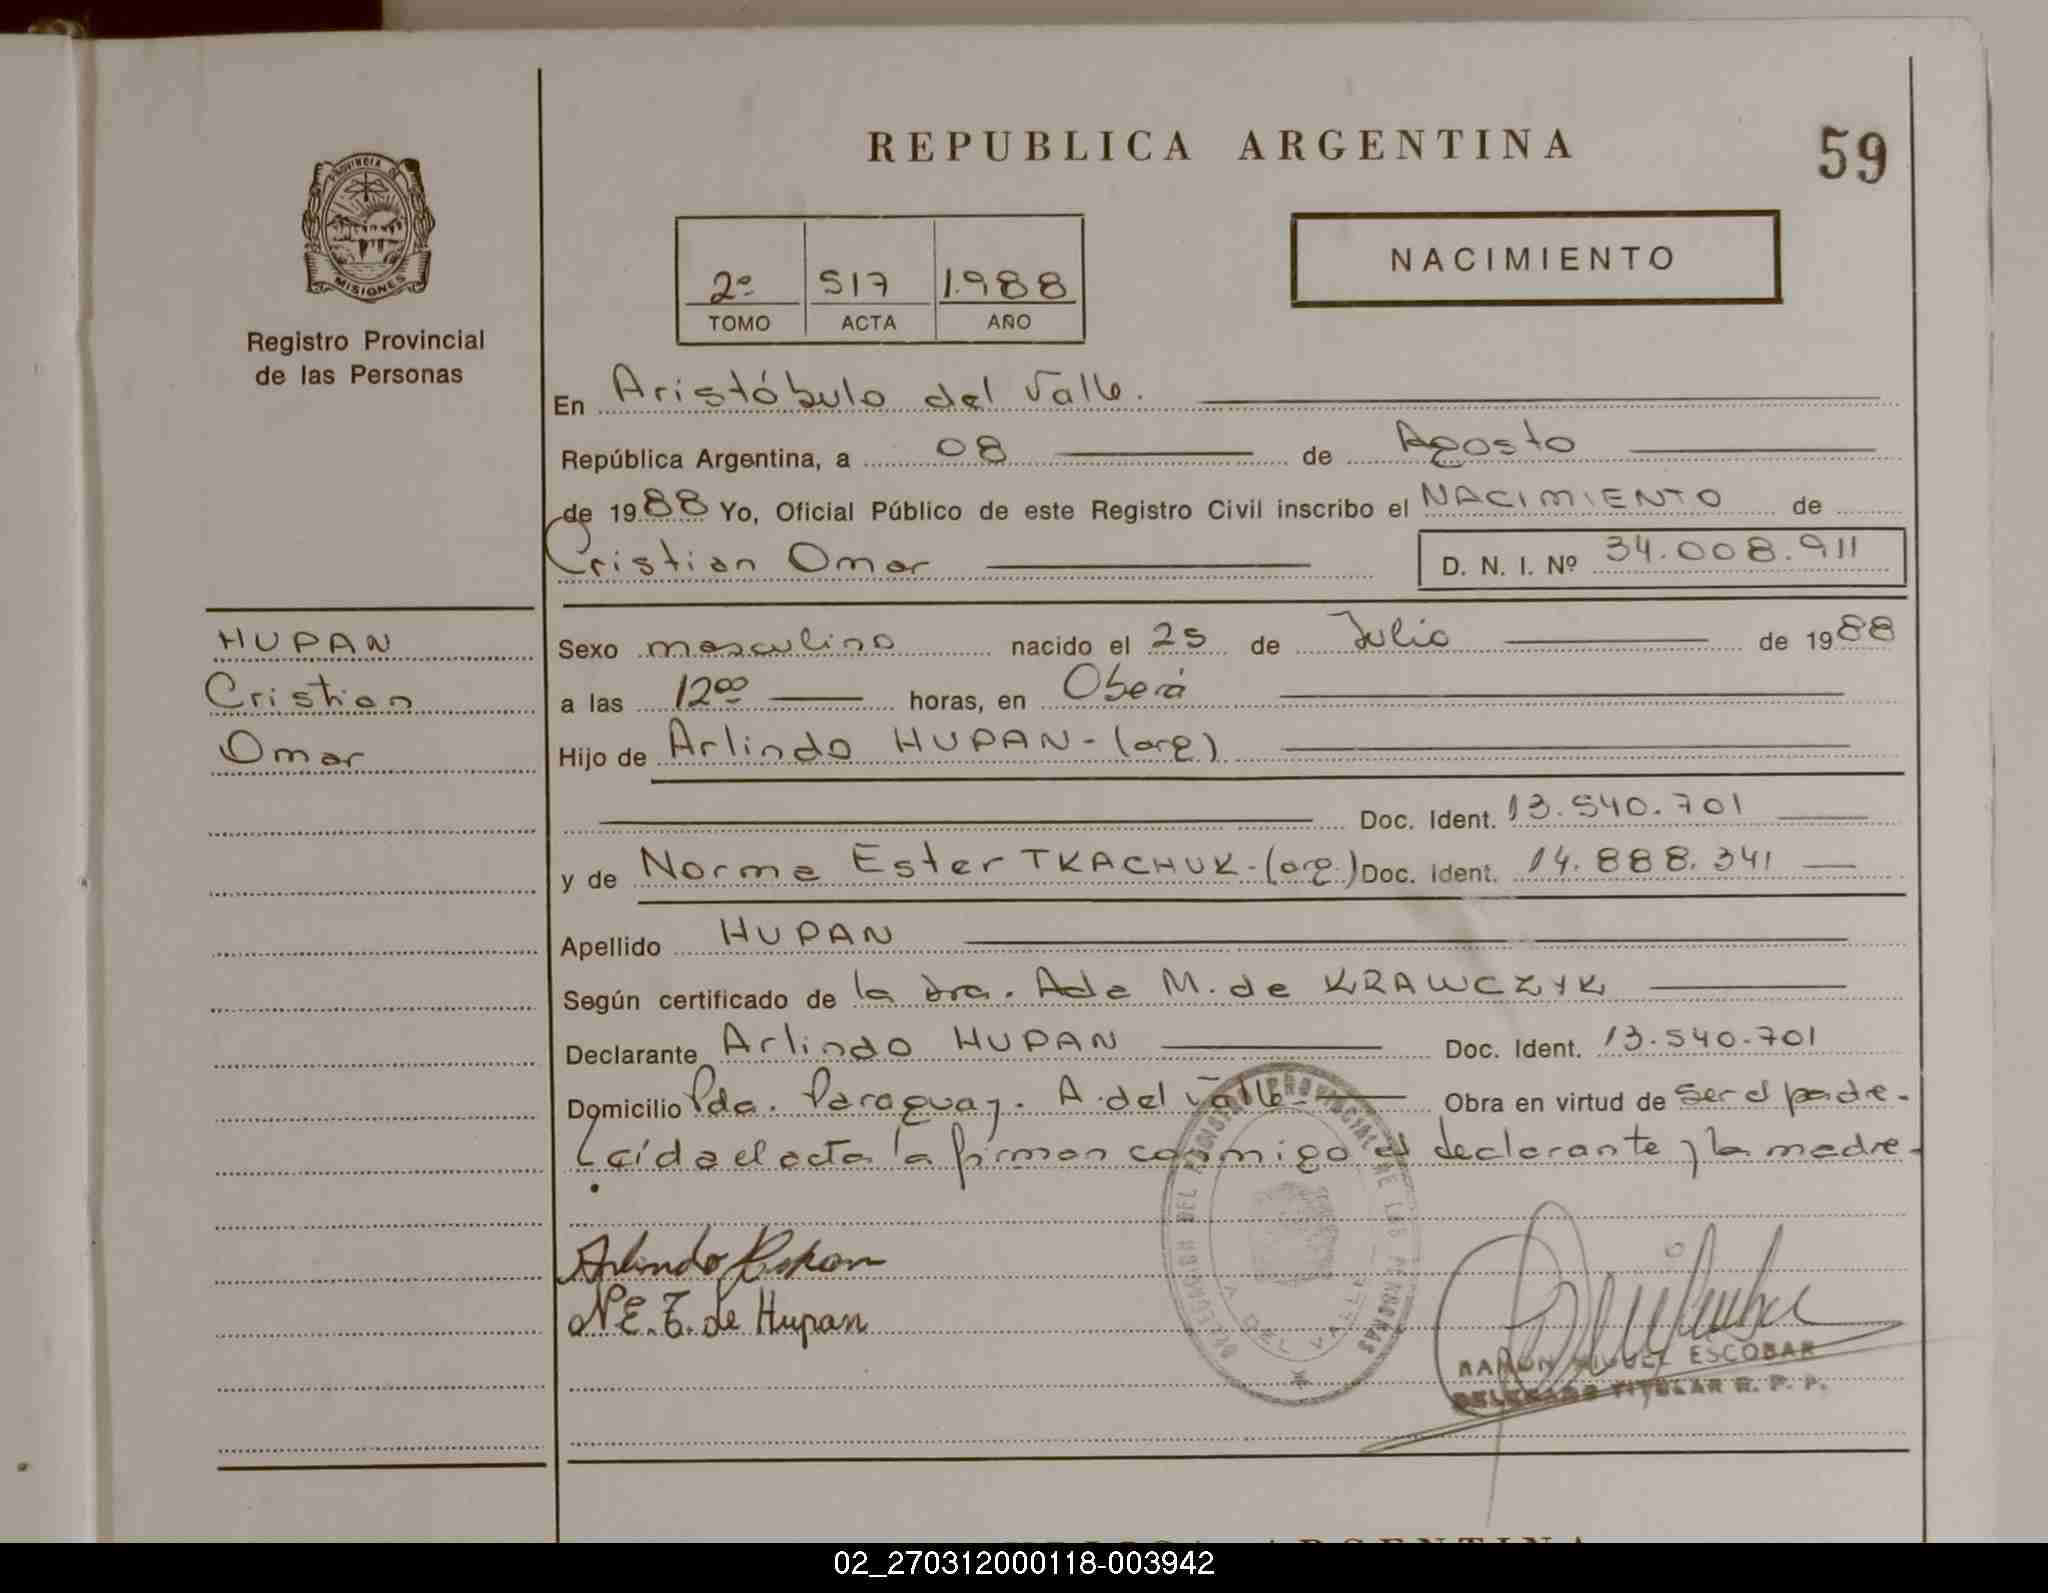 REPUBLICA ARGENTINA
59
PROVINCIA DE
MISIONES
Registro Provincial
de las Personas
2º 517 1.988
TOMO ACTA AÑO
NACIMIENTO
En Aristóbulo del Valle.
República Argentina, a 08 de Agosto
de 1988 Yo, Oficial Público de este Registro Civil inscribo el NACIMIENTO de
Cristian Omar D. N. I. Nº 34.008.911
HUPAN
Cristian
Omar
Sexo masculino nacido el 25 de Julio de 1988
a las 12⁰⁰ horas, en Oberá
Hijo de Arlindo HUPAN-(arg)
Doc. Ident. 13.540.701
y de Norma Ester TKACHUK-(arg.) Doc. Ident. 14.888.341
Apellido HUPAN
Según certificado de la dra. Ada M. de KRAWCZYK
Declarante Arlindo HUPAN Doc. Ident. 13.540.701
Domicilio Pda. Paraguay. A. del Valle Obra en virtud de ser el padre.
Leída el acta la firman conmigo el declarante y la madre.
DELEGACION DEL REGISTRO PROVINCIAL DE LAS PERSONAS
A. DEL VALLE
Arlindo Hupan
N.E.T. de Hupan
RAMON MIGUEL ESCOBAR
DELEGADO TITULAR R. P. P.
REPUBLICA ARGENTINA
02_270312000118-003942